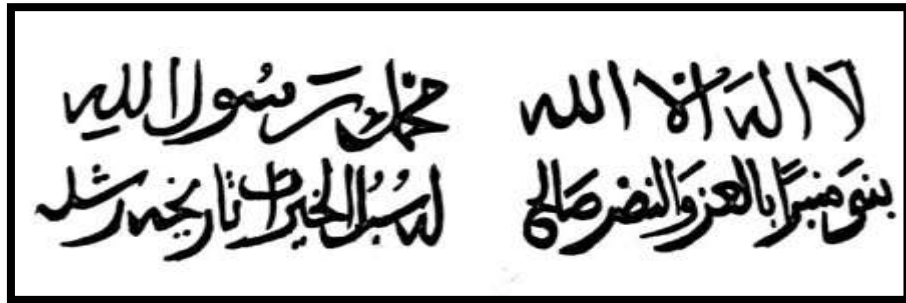 لَا الهَ الا الله محمد رَسُول اللهِ
بنىَ منبرًا بالعز وَالنصر صَالح له سُبُل الخيرات تاريخه